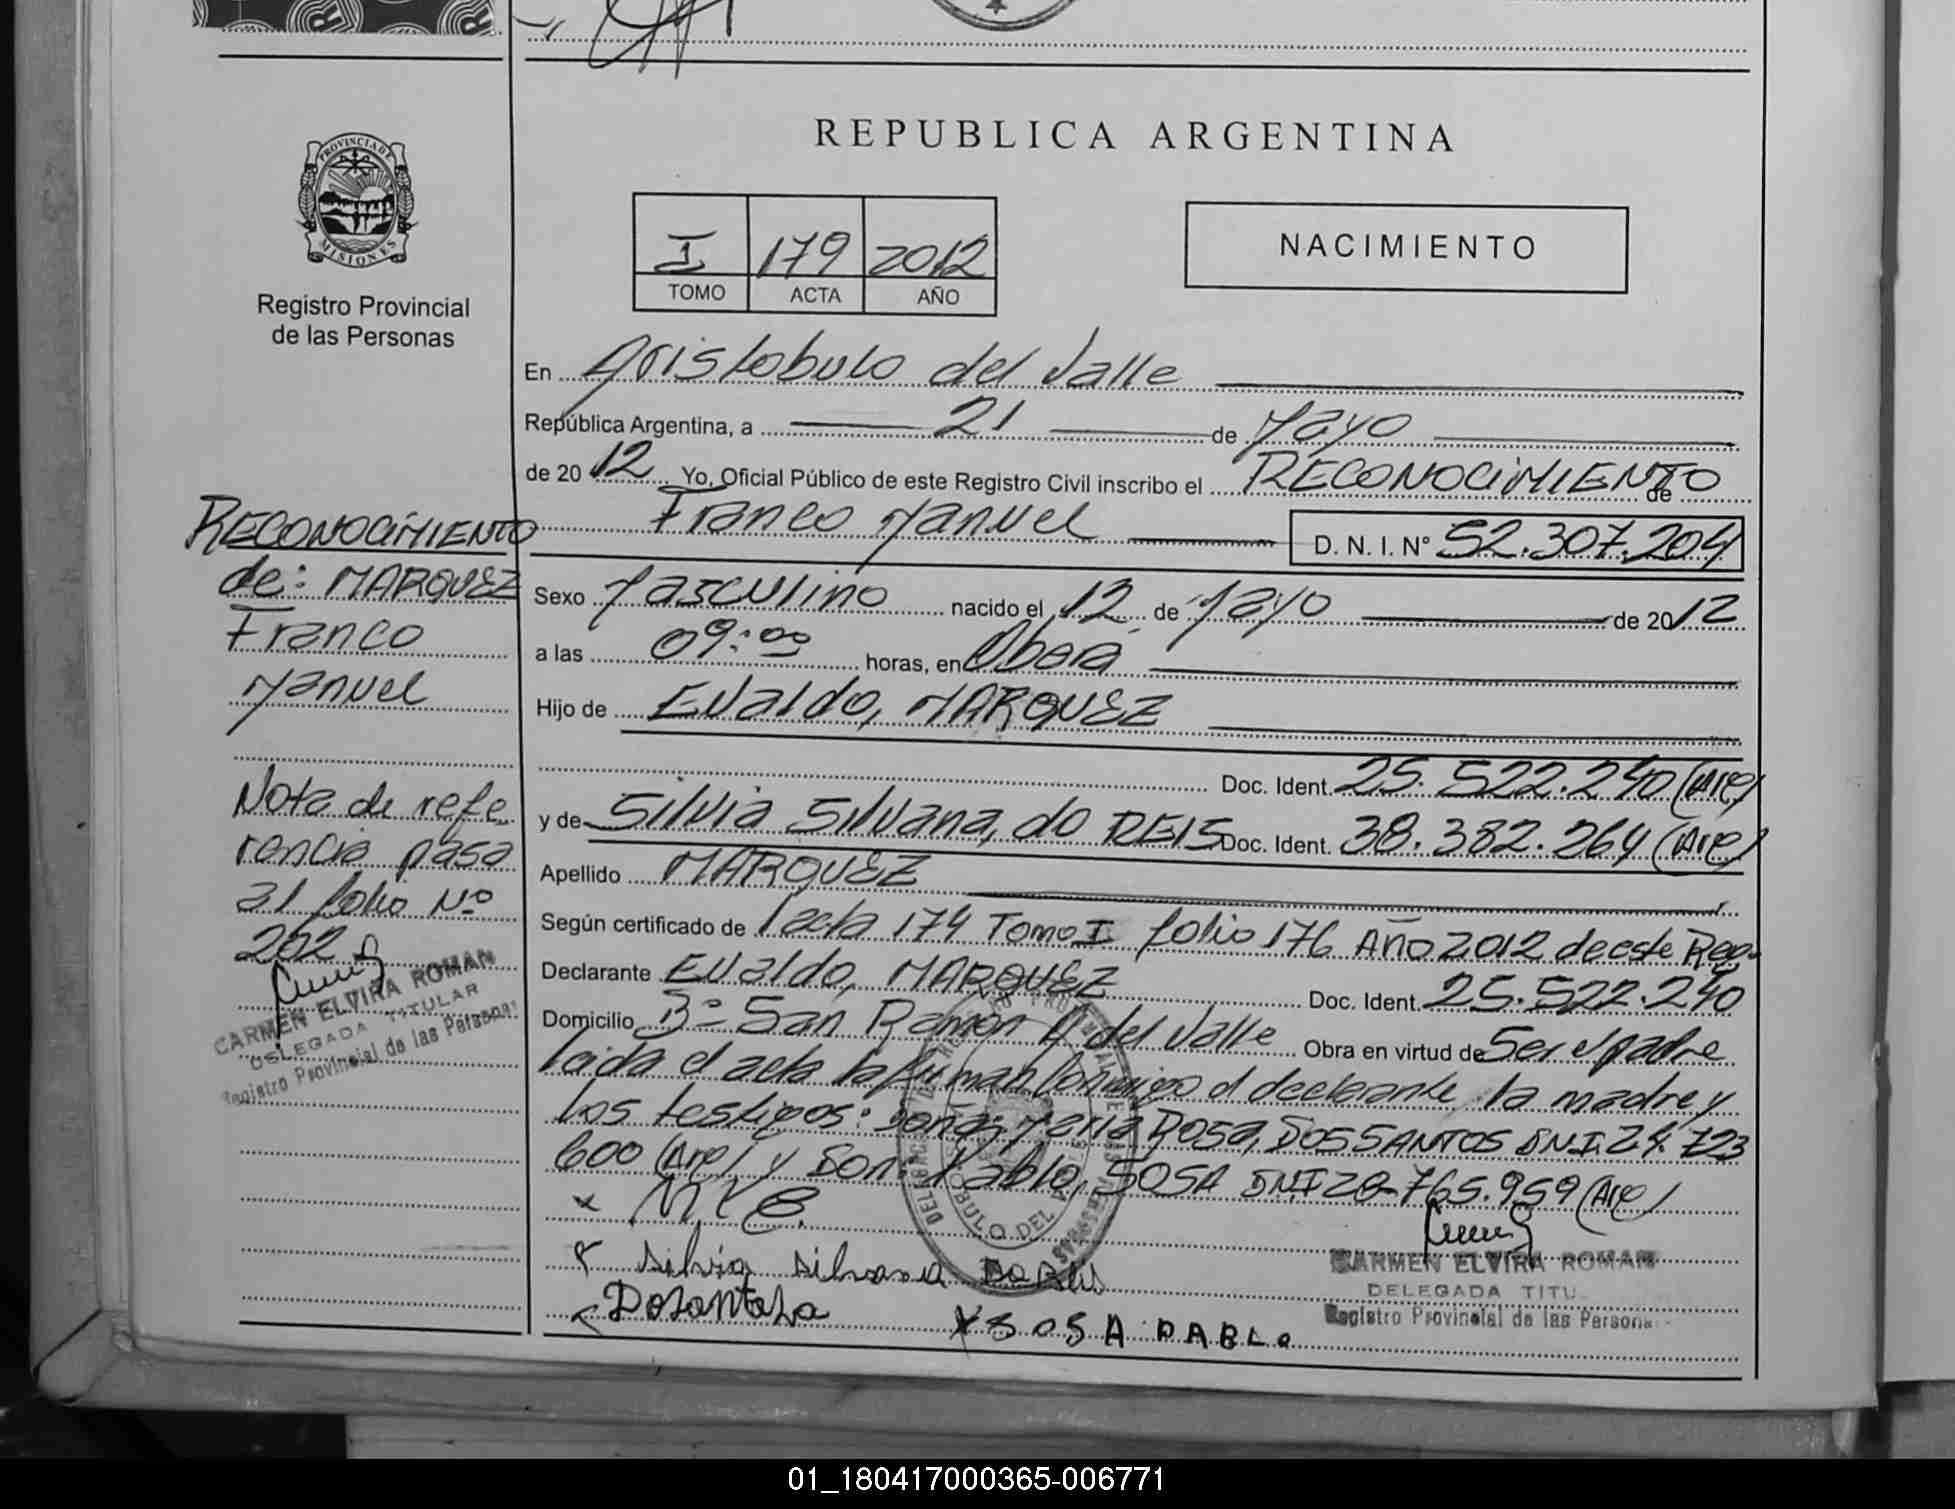 REPUBLICA ARGENTINA
PROVINCIA DE MISIONES
Registro Provincial
de las Personas
I 179 2012
TOMO ACTA AÑO
NACIMIENTO
En Aristobulo del Valle
República Argentina, a 21 de Mayo
de 2012 Yo, Oficial Público de este Registro Civil inscribo el RECONOCIMIENTO de
Franco Manuel D. N. I. N° 52.307.204
Sexo Masculino nacido el 12 de Mayo de 2012
a las 09:00 horas, en Oberá
Hijo de Evaldo, MARQUEZ
Doc. Ident. 25.522.240 (Arg)
y de Silvia Silvana, do REIS Doc. Ident. 38.382.264 (Arg)
Apellido MARQUEZ
Según certificado de Acta 174 Tomo I folio 176 Año 2012 de este Reg.
Declarante Evaldo, MARQUEZ Doc. Ident. 25.522.240
Domicilio Bº San Ramón A del Valle Obra en virtud de Ser el padre
leída el acta la firman conmigo el declarante, la madre y
los testigos: Doña: María Rosa, DOS SANTOS DNI 24.723
600 (Arg) y Don: Pablo, SOSA DNI 28.765.959 (Arg)
x
x Silvia Silvana
x SOSA PABLO
CARMEN ELVIRA ROMAN
DELEGADA TITU
Registro Provincial de las Persona
RECONOCIMIENTO
de: MARQUEZ
Franco
Manuel
Nota de refe
rencia pasa
al folio Nº
202
CARMEN ELVIRA ROMAN
DELEGADA TITULAR
Registro Provincial de las Persona
01_180417000365-006771